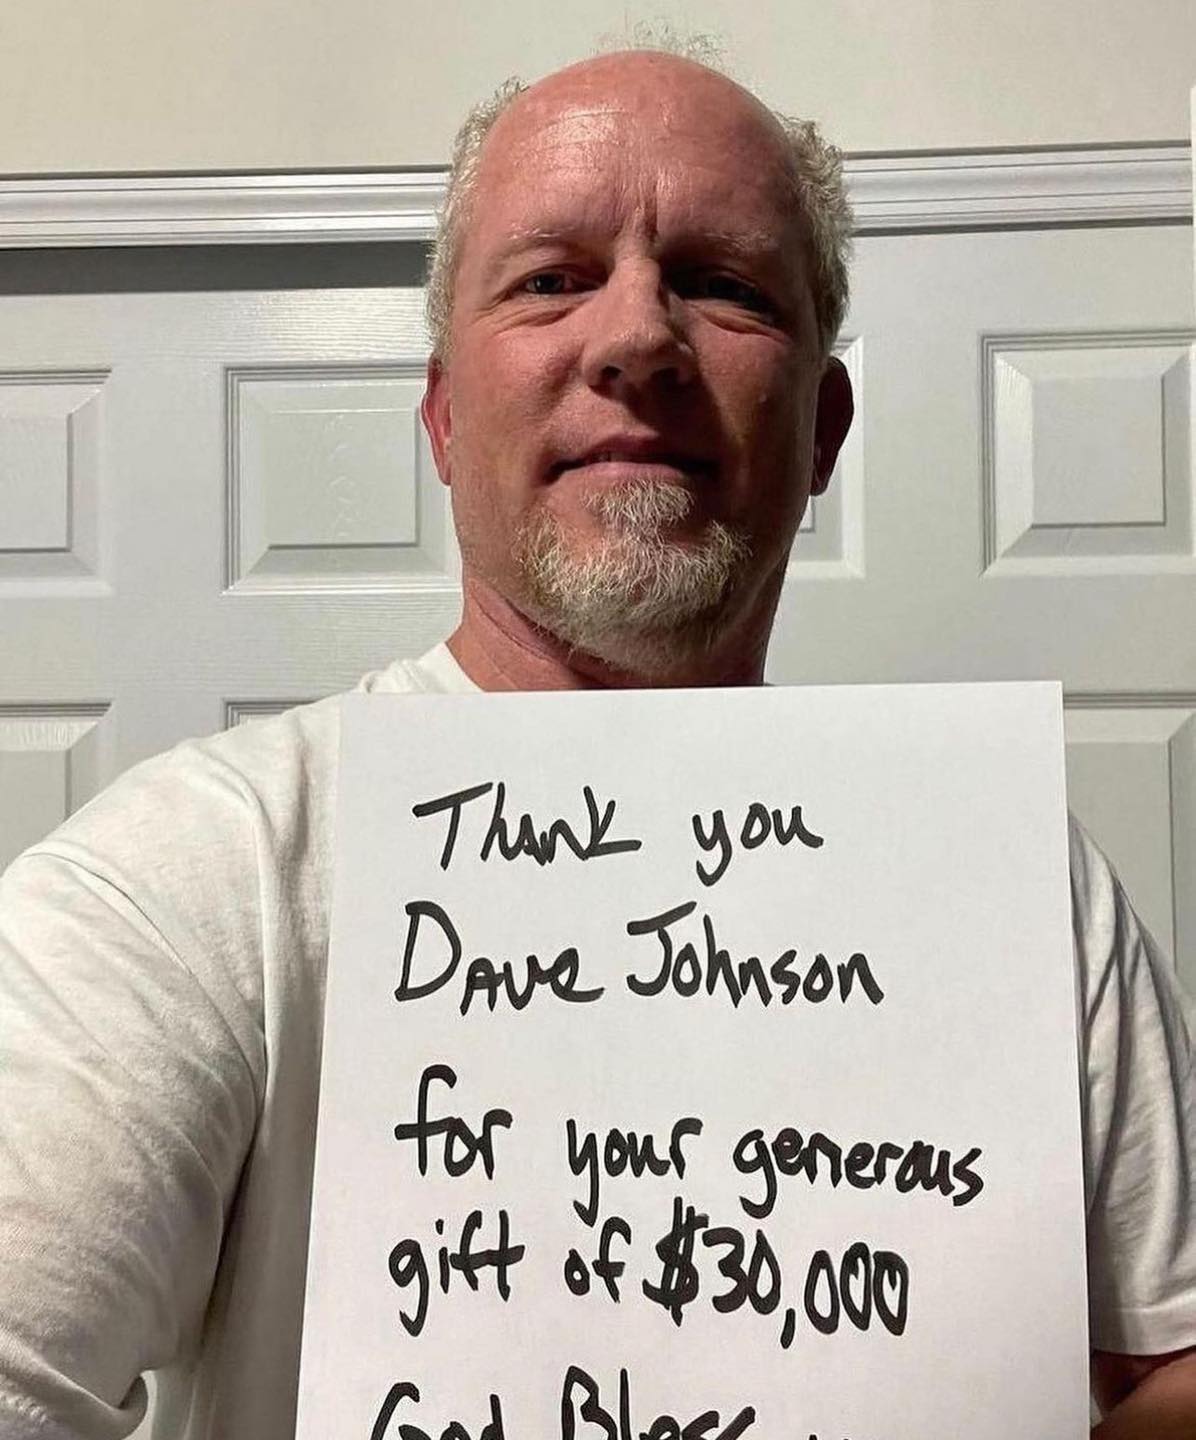 Thank you
Dave Johnson
for your generous
gift of $30,000
God Bless